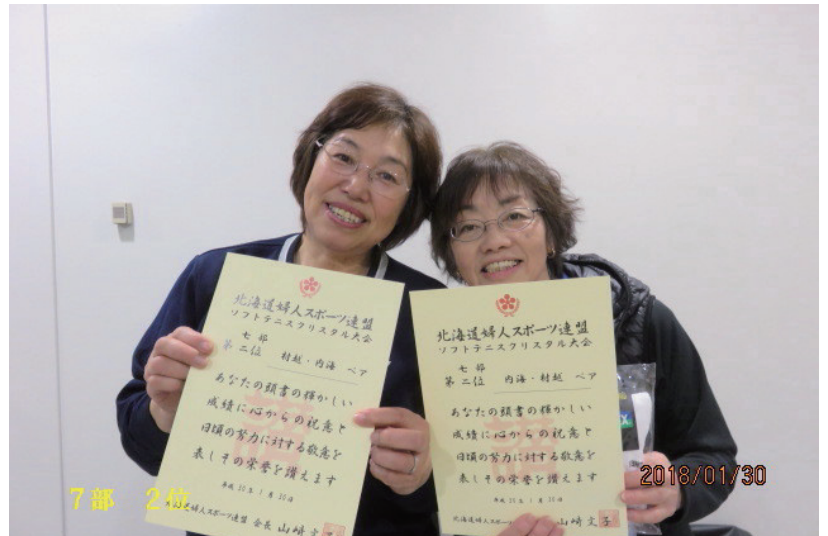 北海道婦人スポーツ連盟
ソフトテニスクリスタル大会
七部
第二位 村越・内海 ペア
あなたの頭書の輝かしい
成績に心からの祝意と
日頃の努力に対する敬意を
表しその栄誉を讃えます
平成30年1月30日
婦人スポーツ連盟 会長 山崎文子
北海道婦人スポーツ連盟
ソフトテニスクリスタル大会
七部
第二位 内海・村越 ペア
あなたの頭書の輝かしい
成績に心からの祝意と
日頃の努力に対する敬意を
表しその栄誉を讃えます
平成30年1月30日
北海道婦人スポーツ 山崎文子
7部 2位
2018/01/30